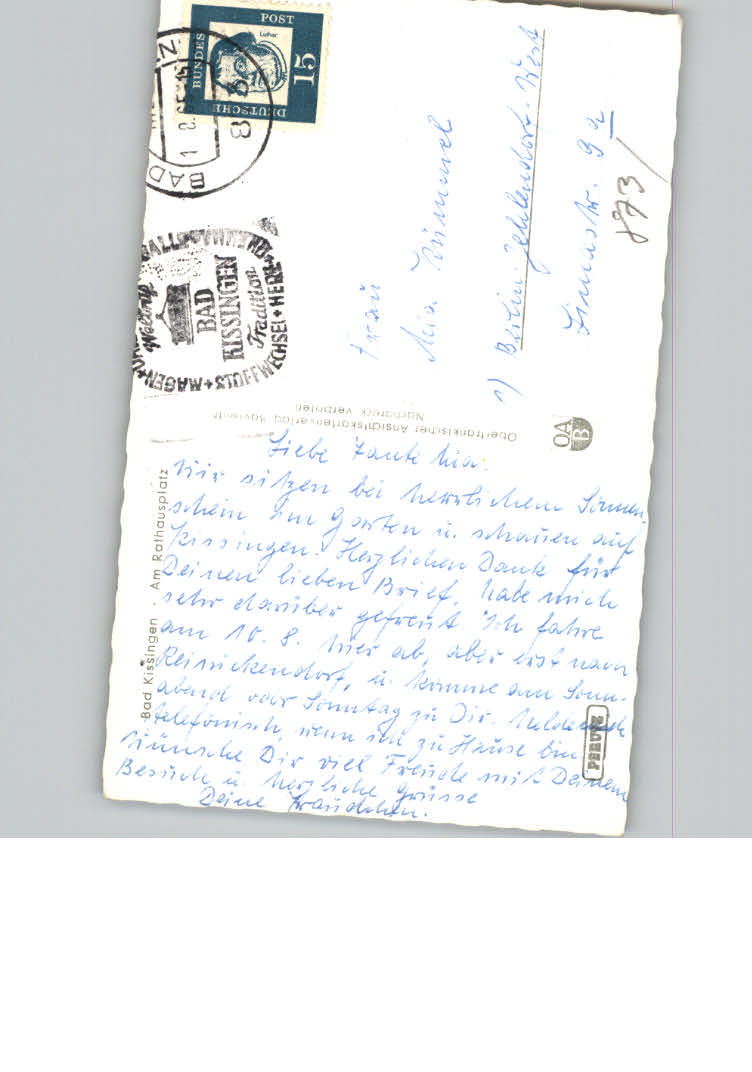 Bad Kissingen · Am Rathausplatz
Liebe Tante Mia.
Wir sitzen bei herrlichem Sonnen-
schein im Garten u. schauen auf
Kissingen. Herzlichen Dank für
Deinen lieben Brief, habe mich
sehr darüber gefreut Ich fahre
am 10. 8. hier ab, aber erst nach
Reinickendorf, u. komme am Sonn-
abend oder Sonntag zu Dir. Melde mich
telefonisch, wenn ich zu Hause bin
Wünsche Dir viel Freude mit Deinem
Besuch u. herzliche Grüsse
Deine
Oberfränkischer Ansichtskartenverlag
Nachdruck verboten
OA
B
PERUTZ
DEUTSCHE
BUNDES
POST
15
Luther
BAD
1 8
8
BAD
KISSINGEN
Tradition
MAGEN + STOFFWECHSEL + HERZ
Frau
Mia Kümmel
1) Berlin-Zehlendorf-West
9a
873/